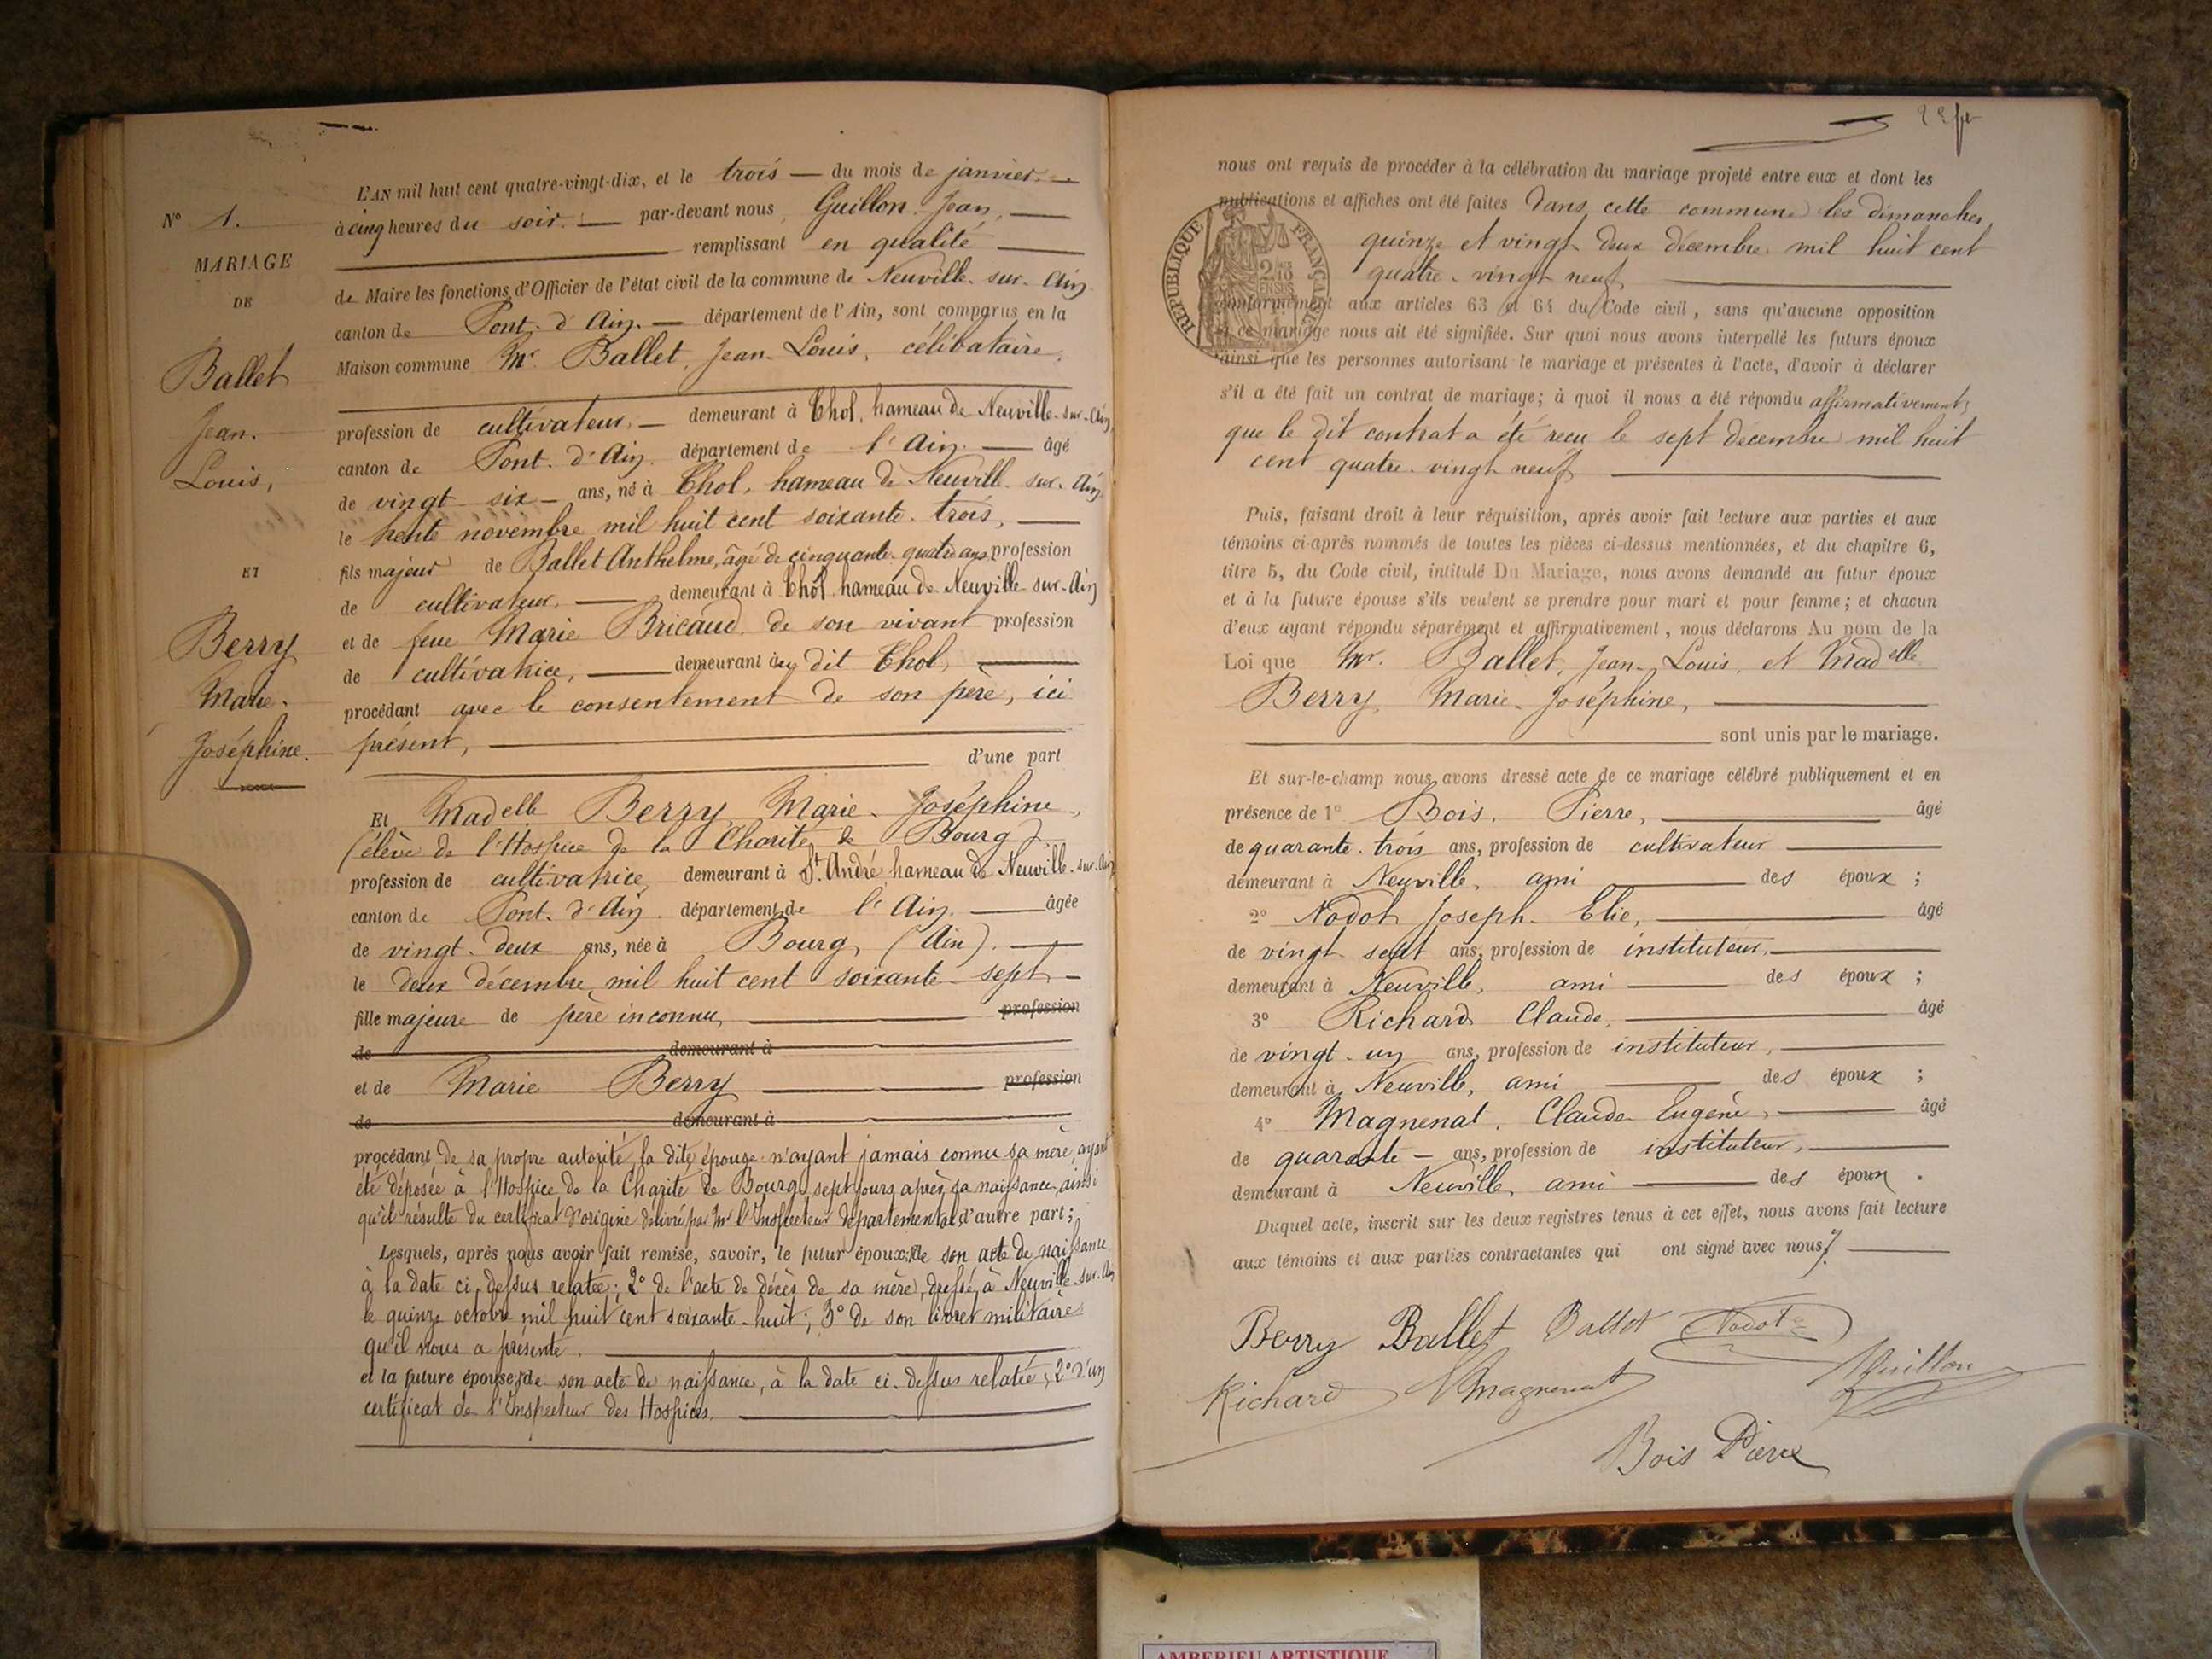 N° 1.
MARIAGE
DE
Ballet
Jean.
Louis,
ET
Berry
Marie.
Joséphine.
L'AN mil huit cent quatre-vingt-dix, et le trois — du mois de janvier. —
à cinq heures du soir. — par-devant nous, Guillon Jean, —
remplissant en qualité
de Maire les fonctions d'Officier de l'état civil de la commune de Neuville-sur-Ain
canton de Pont-d'Ain. — département de l'Ain, sont comparus en la
Maison commune Mr. Ballet, Jean-Louis, célibataire,
profession de cultivateur, — demeurant à Thol, hameau de Neuville-sur-Ain
canton de Pont-d'Ain. département de l'Ain. — âgé
de vingt-six — ans, né à Thol, hameau de Neuvill-sur-Ain
le trente novembre mil huit cent soixante-trois, —
fils majeur de Ballet Anthelme, âgé de cinquante-quatre ans, profession
de cultivateur, — demeurant à Thol, hameau de Neuville-sur-Ain
et de feue Marie Bricaud, de son vivant profession
de cultivatrice, — demeurant au dit Thol, —
procédant avec le consentement de son père, ici
présent, —
d'une part
Et Madelle Berry, Marie-Joséphine,
(élève de l'Hospice de la Charité de Bourg)
profession de cultivatrice, demeurant à St. André, hameau de Neuville-sur-Ain
canton de Pont-d'Ain. département de l'Ain. — âgée
de vingt-deux ans, née à Bourg, (Ain). —
le deux décembre mil huit cent soixante-sept —
fille majeure de père inconnu, — profession
de demeurant à
et de Marie Berry — profession
de demeurant à
procédant de sa propre autorité, la dite épouse n'ayant jamais connu sa mère, ayant
été déposée à l'Hospice de la Charité de Bourg, sept jours après sa naissance, ainsi
qu'il résulte du certificat d'origine délivré par Mr l'Inspecteur départemental, d'autre part;
Lesquels, après nous avoir fait remise, savoir, le futur époux: de son acte de naissance
à la date ci-dessus relatée; 2° de l'acte de décès de sa mère, dressé à Neuville-sur-Ain
le quinze octobre mil huit cent soixante-huit; 3° de son livret militaire
qu'il nous a présenté.
et la future épouse: de son acte de naissance, à la date ci-dessus relatée; 2° d'un
certificat de l'Inspecteur des Hospices.
nous ont requis de procéder à la célébration du mariage projeté entre eux et dont les
publications et affiches ont été faites dans cette commune les dimanches
quinze et vingt-deux décembre mil huit cent
quatre-vingt-neuf
conformément aux articles 63 et 64 du Code civil, sans qu'aucune opposition
à ce mariage nous ait été signifiée. Sur quoi nous avons interpellé les futurs époux
ainsi que les personnes autorisant le mariage et présentes à l'acte, d'avoir à déclarer
s'il a été fait un contrat de mariage; à quoi il nous a été répondu affirmativement,
que le dit contrat a été reçu le sept décembre mil huit
cent quatre-vingt-neuf
RÉPUBLIQUE FRANÇAISE
Puis, faisant droit à leur réquisition, après avoir fait lecture aux parties et aux
témoins ci-après nommés de toutes les pièces ci-dessus mentionnées, et du chapitre 6,
titre 5, du Code civil, intitulé Du Mariage, nous avons demandé au futur époux
et à la future épouse s'ils veulent se prendre pour mari et pour femme; et chacun
d'eux ayant répondu séparément et affirmativement, nous déclarons Au nom de la
Loi que Mr. Ballet, Jean-Louis, et Madelle
Berry, Marie-Joséphine, —
sont unis par le mariage.
Et sur-le-champ nous avons dressé acte de ce mariage célébré publiquement et en
présence de 1° Bois, Pierre, — âgé
de quarante-trois ans, profession de cultivateur
demeurant à Neuville, ami — des époux ;
2° Nodot Joseph-Elie, — âgé
de vingt-sept ans, profession de instituteur, —
demeurant à Neuville, ami — des époux ;
3° Richard Claude, — âgé
de vingt-un ans, profession de instituteur, —
demeurant à Neuville, ami — des époux ;
4° Magnenat, Claude-Eugène, — âgé
de quarante — ans, profession de instituteur, —
demeurant à Neuville, ami — des époux .
Duquel acte, inscrit sur les deux registres tenus à cet effet, nous avons fait lecture
aux témoins et aux parties contractantes qui ont signé avec nous.
Berry Ballet Ballet Nodot
Richard Magnenat Guillon
Bois Pierre
AMBERIEU ARTISTIQUE